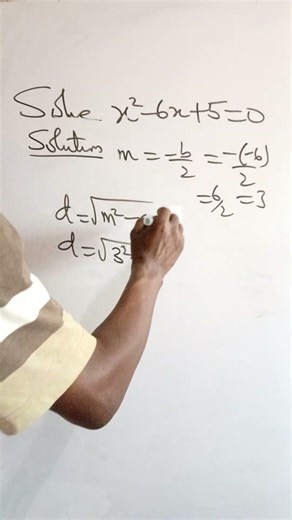 Solve x²-6x+5=0
Solution m = -b/2 = -(-6)/2
= 6/2 = 3
d = √m² -
d = √3²